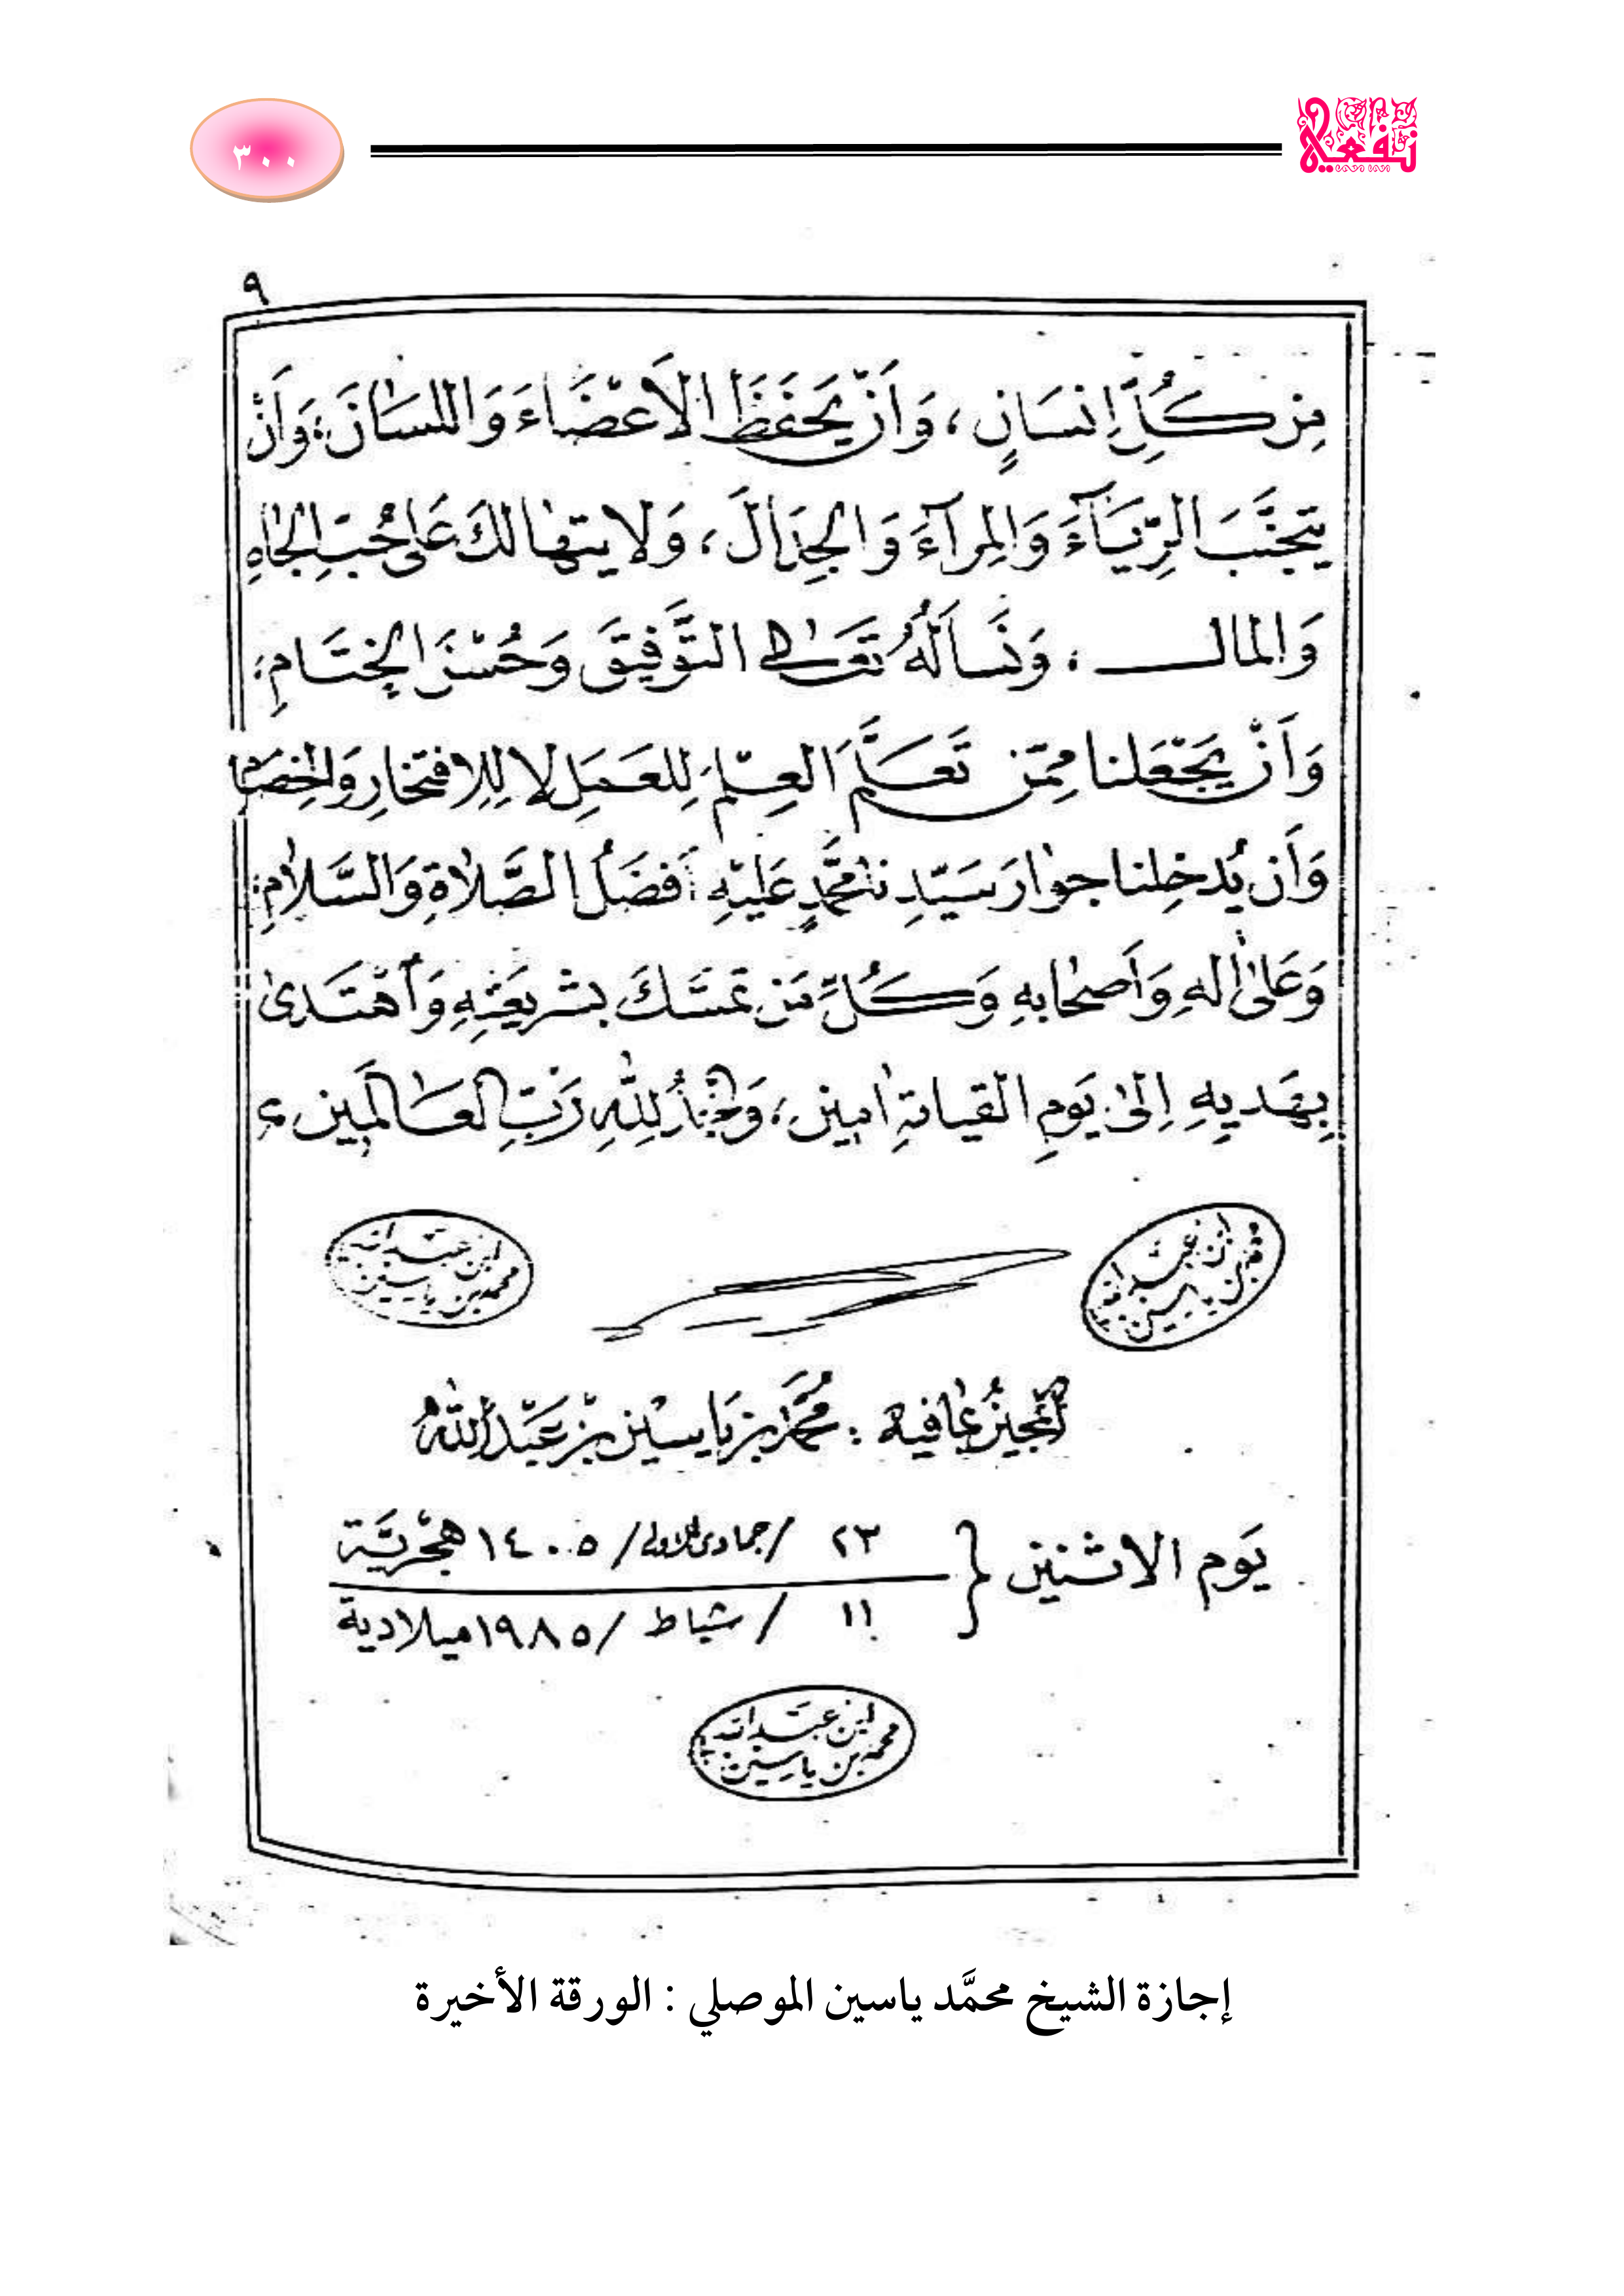 ٣٠٠
٩
مِن كُلِّ اِنسَانٍ ، وَاَنْ يَحفَظَ الاَعْضَاءَ وَاللسَانَ ؛ وَاَنْ
يتجنَّبَ الرِّيَآءَ وَالمِرآءَ وَالجِدَالَ ، وَلا يتهالكَ عَلى حُبِّ الجَاهِ
وَالمالـ ، وَنَسأَلُهُ تَعَالى التَّوفِيقَ وَحُسْنَ الخِتَامِ ؛
وَاَنْ يَجْعَلنا مِمّن تَعَلَّمَ العِلمَ لِلعَمَلِ لا لِلاِفتخارِ وَالخِصَام
وَاَن يُدخِلنا جوارَ سَيّدِنا مُحَمَّدٍ عَليْهِ اَفضَلُ الصَّلاةِ وَالسَّلامِ ؛
وَعَلى الهِ وَاَصحابهِ وَكُلِّ مَن تمسَّكَ بشريعَتِهِ وَاَهْتَدى
بِهَديِهِ اِلىٰ يَومِ القيامةِ امين ، وَالحَمْدُ لِلّٰهِ رَبِّ العَالَمين ؛
ابن عبد الله
محمد بن ياسين
ابن عبد الله
محمد بن ياسين
المجيز بما فيه : مُحَمَّد بن يَاسين بن عَبْد اللّٰه
يَوم الاثنين { ٢٣ / جمادى الاولى / ١٤٠٥ هِجْريَّة
١١ / شباط / ١٩٨٥ ميلادية
ابن عبد الله
محمد بن ياسين
إجازة الشيخ محمَّد ياسين الموصلي : الورقة الأخيرة